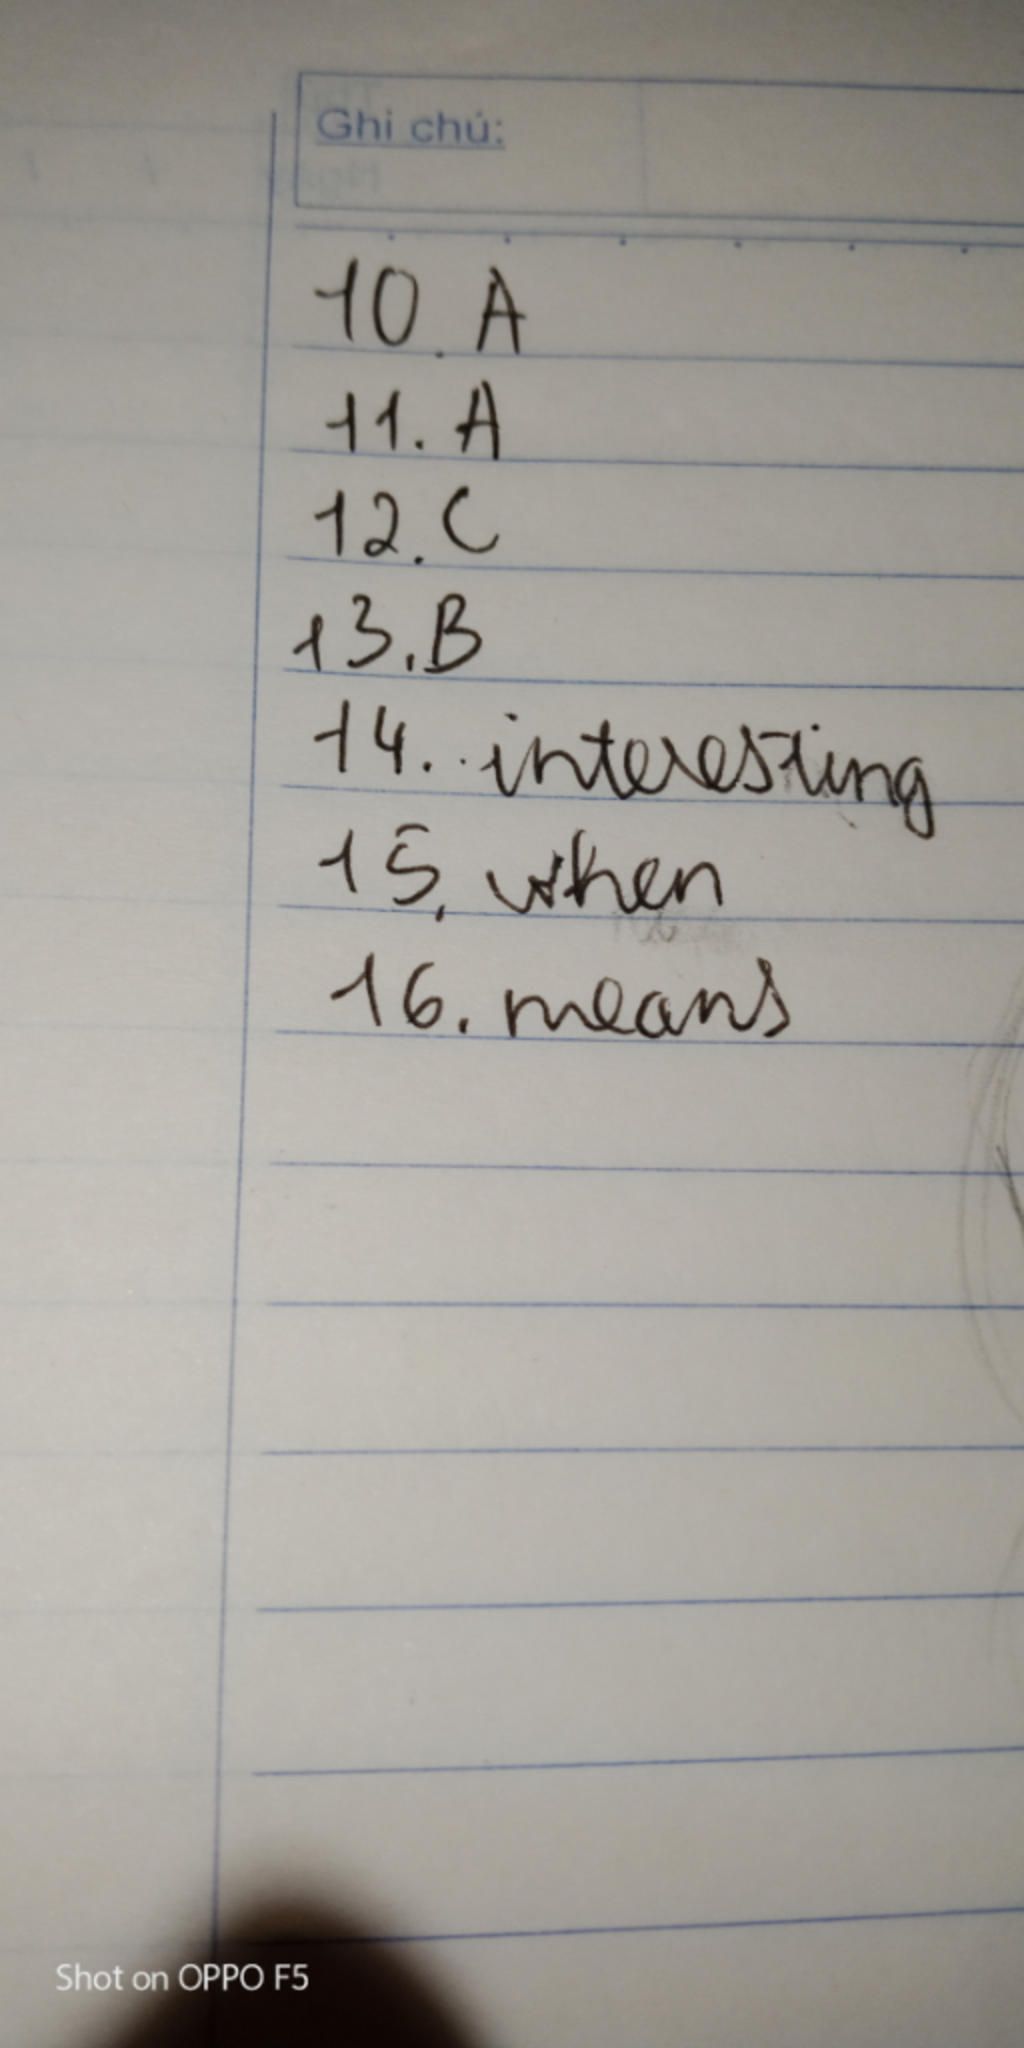 Ghi chú:
10. A
11. A
12. C
13. B
14. interesting
15. when
16. means
Shot on OPPO F5